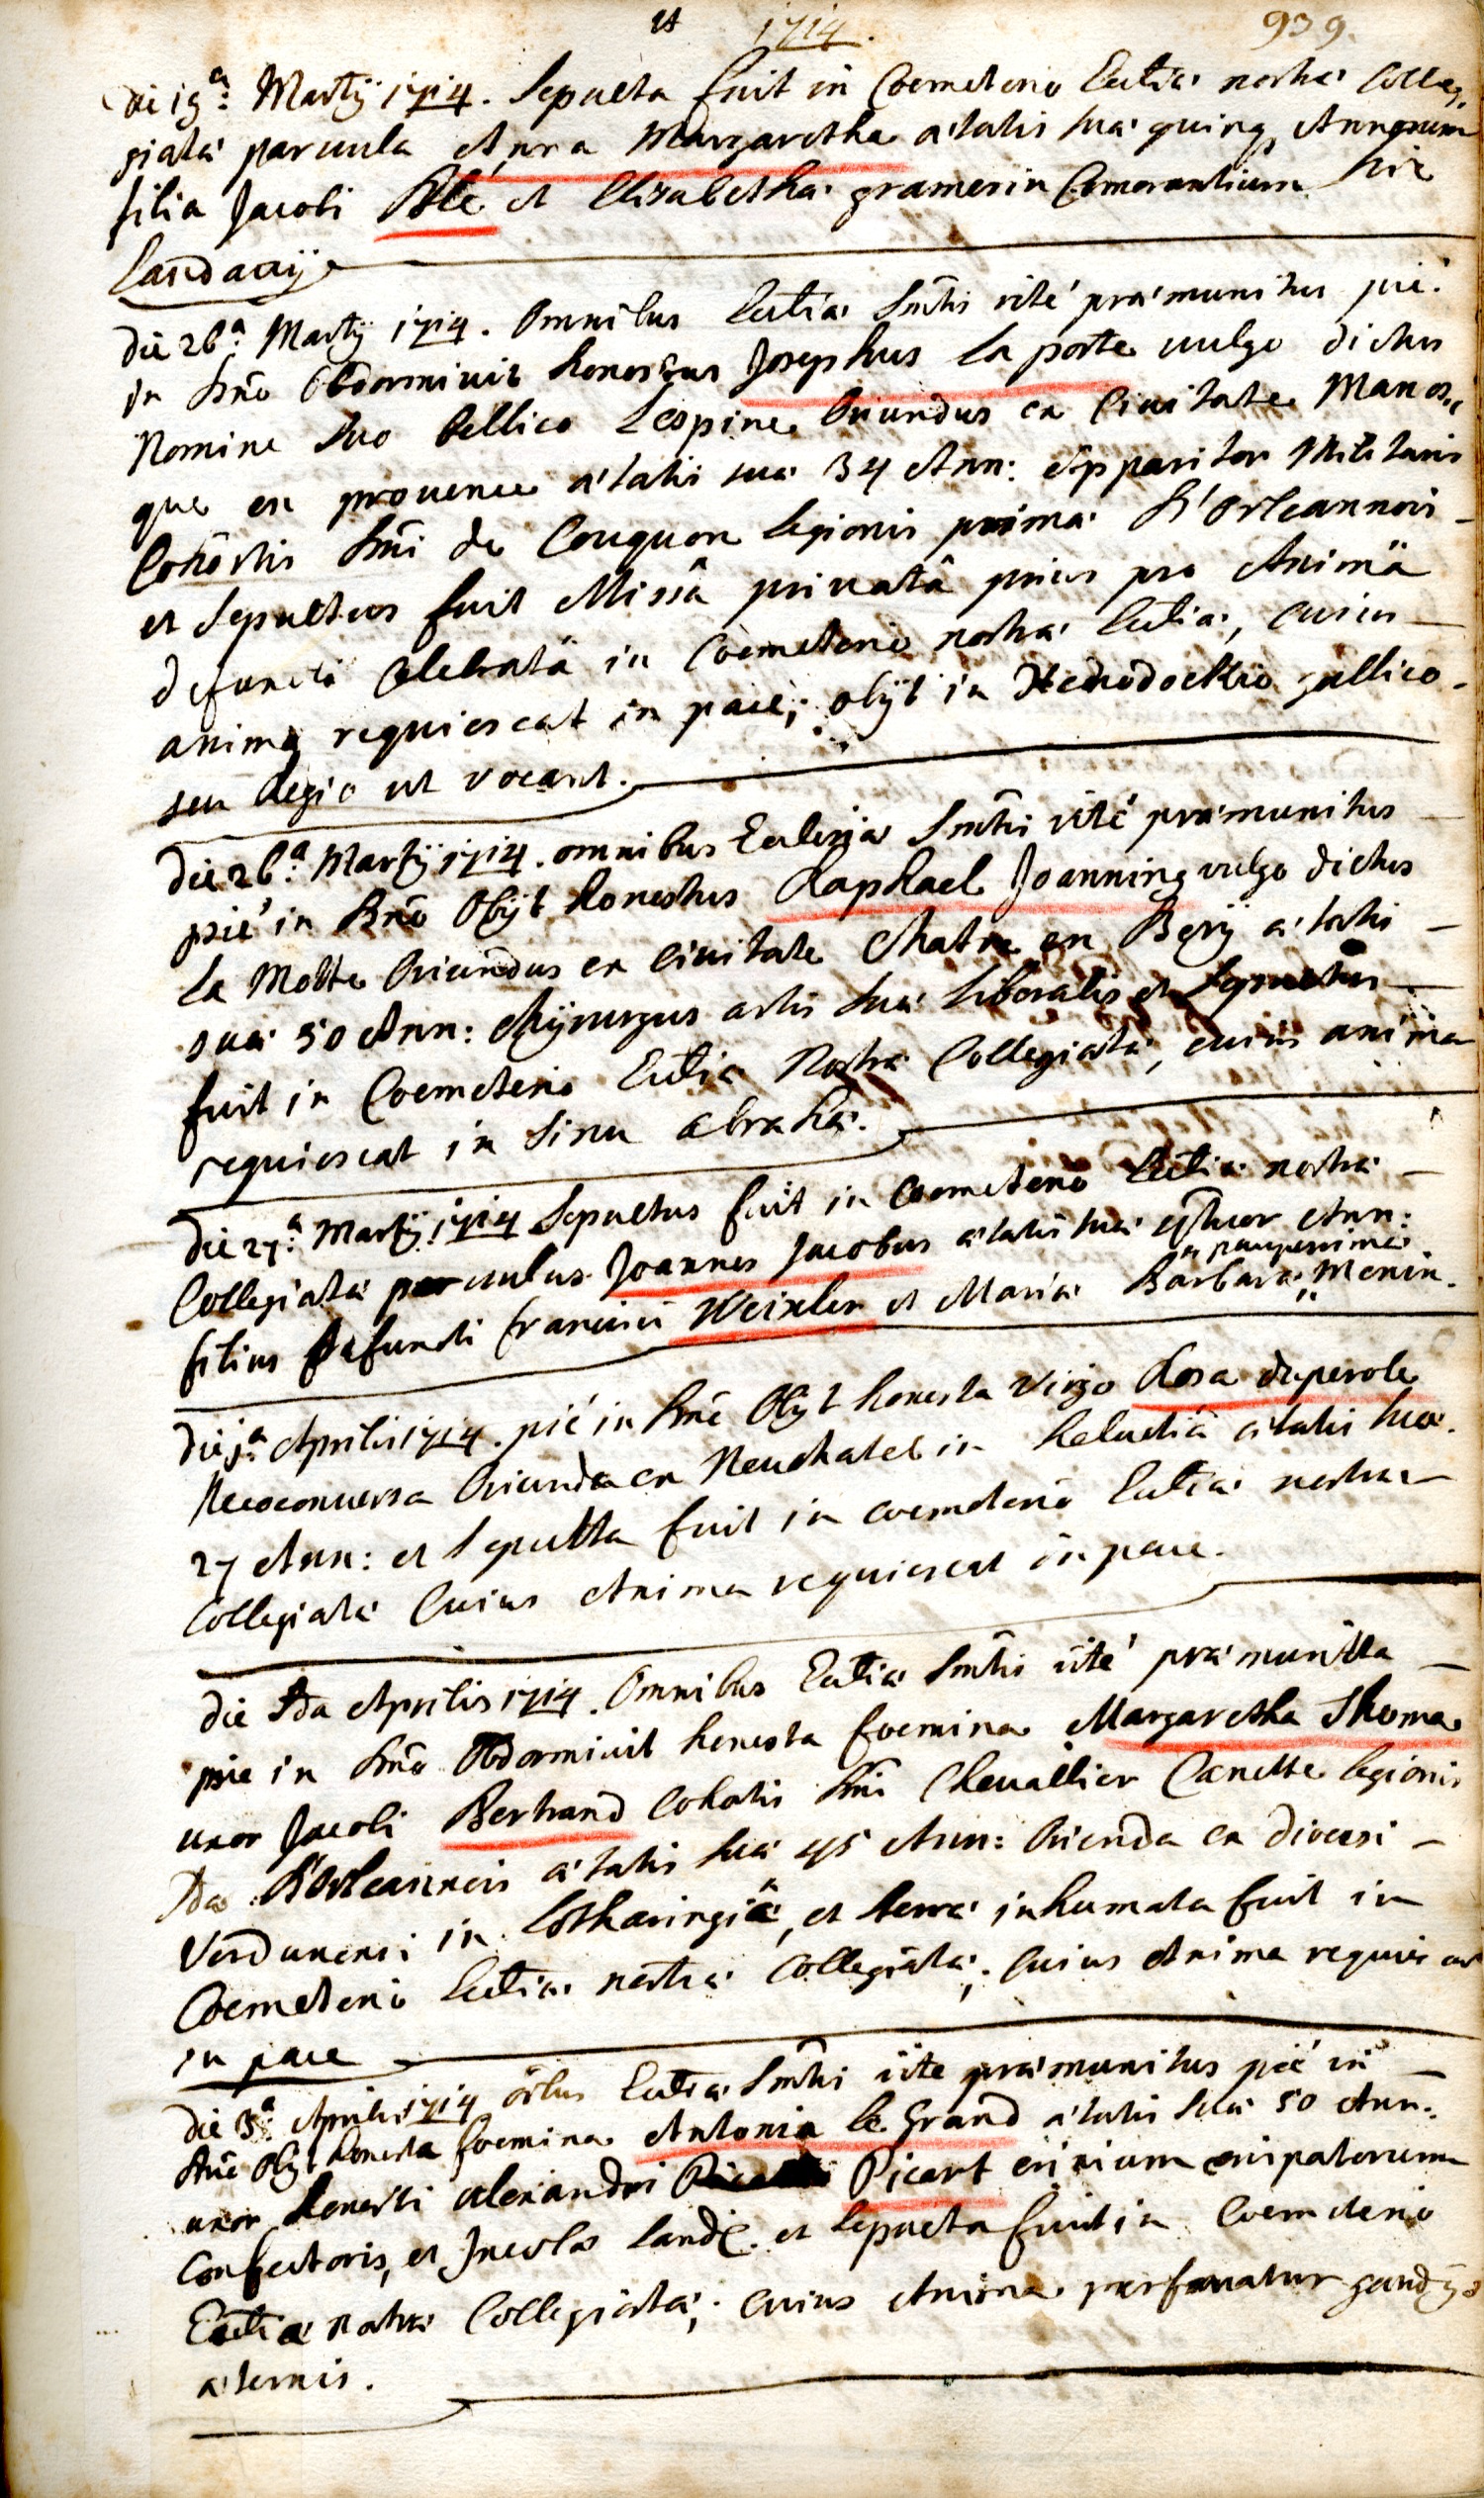 1714. 939.
Die 19ª: Martÿ 1714. Sepulta fuit in Coemeterio Eccliæ nostræ Colle-
giatæ parvula Anna Margaretha ætatis suæ quinq Annorum
filia Jacobi Blé et Elisabethæ gramerin Comorantium hic
Landavÿ
Die 26ª Martÿ 1714. Omnibus Eccliæ Smtis rité præmunitus pié
in Dño Obdormivit honestus Josephus La porte vulgo dictus
Nomine suo bellico Lespine Oriundus ex Civitate Manos-
que en provence ætatis suæ 34 Ann: Apparitor Militaris
Cohortis Dñi de Couquon legionis primæ D'Orleannois
et Sepultus fuit Missâ privatâ prius pro Animâ
defuncti Celebratâ in Coemeterio nostræ Eccliæ, cuius
anima requiescat in pace; obÿt in Xenodochio gallico
seu Regio ut vocant.
Die 26ª: Martÿ 1714. omnibus Ecclesiæ Smtis rité præmunitus
pié in Dño Obÿt honestus Raphael Joanning vulgo dictus
La Motte Oriundus ex civitate Chatre en Berÿ ætatis
suæ 50 Ann: Chÿrurgus artis suæ liberalis et Sepultus
fuit in Coemeterio Eccliæ Nostræ Collegiatæ, cuius anima
requiescat in Sinu abrahæ.
Die 27ª: Martÿ 1714 Sepultus fuit in Coemeterio Eccliæ nostræ
Collegiatæ parvulus Joannes Jacobus ætatis suæ quatuor Ann:
filius defuncti francisci Weixler et Mariæ Barbaræ Menin. pauperrimæ
Die 1ª: Aprilis 1714. pié in Dño Obÿt honesta Virgo Rosa duperole
Neoconversa Oriunda ex Neuchatel in helvetiâ ætatis suæ
27 Ann: et Sepulta fuit in coemeterio Eccliæ nostræ
Collegiatæ Cuius Anima requiescat in pace.
Die 2da Aprilis 1714. Omnibus Eccliæ Smtis rité præmunita
pie in Dño Obdormivit honesta foemina Margaretha Thoma
uxor Jacobi Bertrand Cohortis Dñi Chevallier Canette legionis
2da D'Orleannois ætatis suæ 45 Ann: Orienda ex diocesi
Verdunensi in Lotharingiâ, et terræ inhumata fuit in
Coemeterio Eccliæ nostræ Collegiatæ; Cuius Anima requiescat
in pace
Die 3ª: Aprilis 1714 oibus Eccliæ Smtis rite præmunitus pié in
Dño Obÿt honesta foemina Antonia le Grand ætatis suæ 50 Ann:
uxor honesti Alexandri Picart crinium
Confectoris, et Incolæ Land. et Sepulta fuit in Coemeterio
Eccliæ nostræ Collegiatæ; cuius Anima perfruatur gaudÿs
æternis.